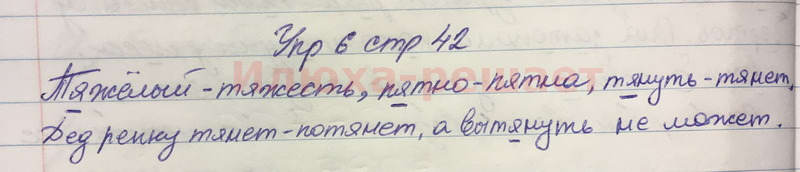 Упр 6 стр 42
Илюха-решает
Тяжёлый - тяжесть, пятно - пятна, тянуть - тянет,
Дед репку тянет - потянет, а вытянуть не может.